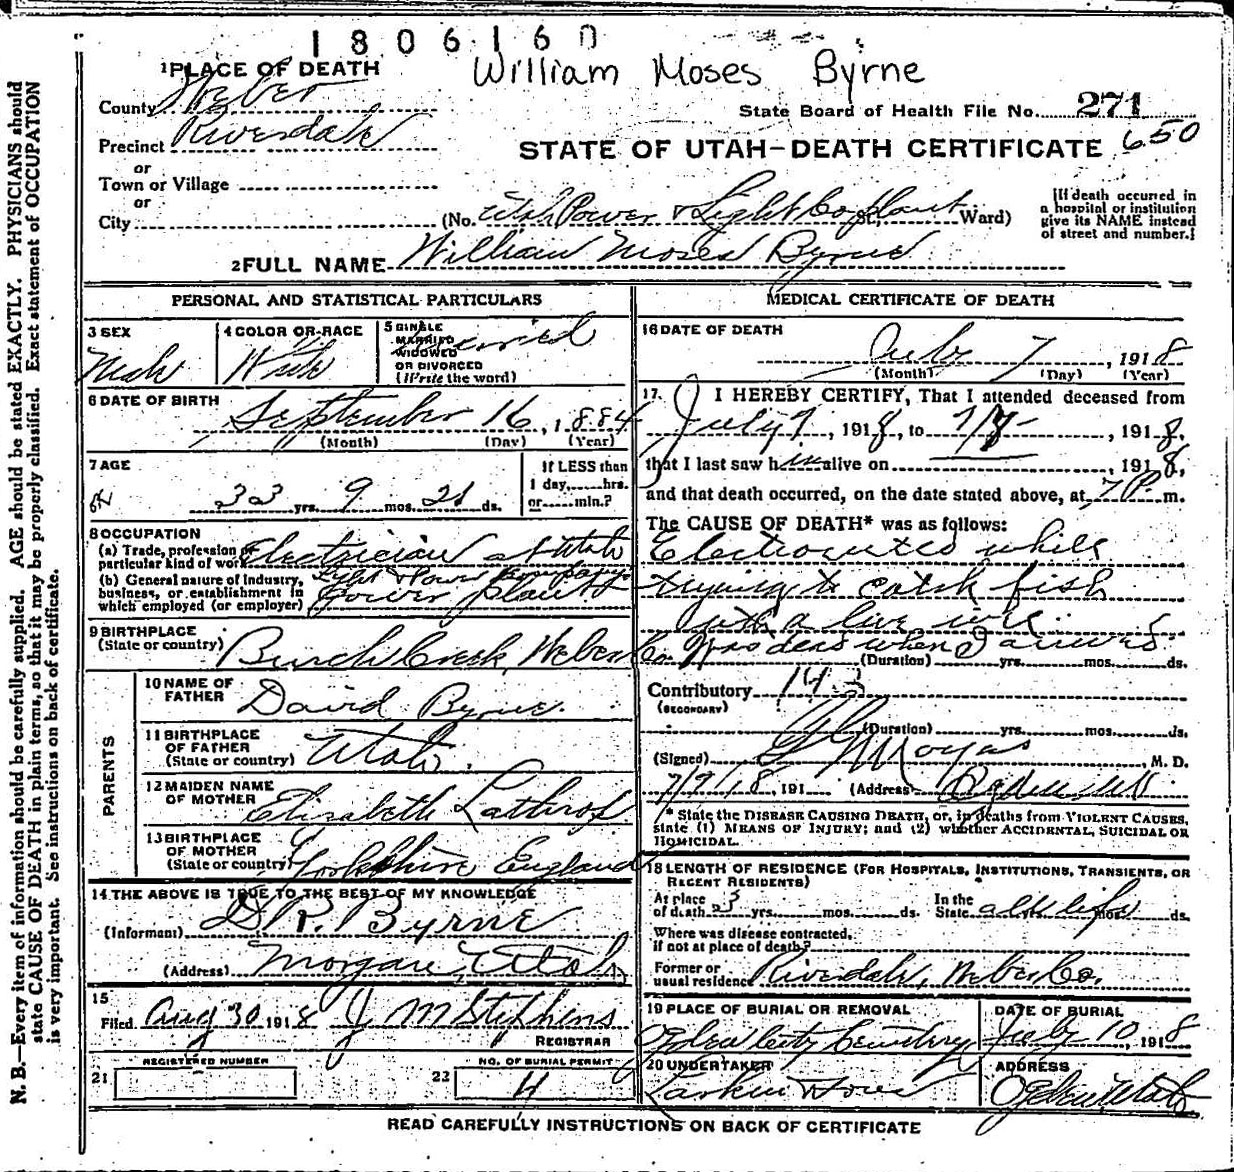 1806160
William Moses Byrne
1 PLACE OF DEATH
County Weber
State Board of Health File No. 271
650
Precinct Riverdale
STATE OF UTAH—DEATH CERTIFICATE
or
Town or Village
or
City
(No. Utah Power & Light Co plant St., Ward)
[If death occurred in
a hospital or institution
give its NAME instead
of street and number.]
2 FULL NAME William Moses Byrne
PERSONAL AND STATISTICAL PARTICULARS
3 SEX
Male
4 COLOR OR RACE
White
5 SINGLE
MARRIED
WIDOWED
OR DIVORCED
(Write the word)
Married
6 DATE OF BIRTH
September 16, 1884
(Month) (Day) (Year)
7 AGE
33 yrs. 9 mos. 21 ds.
If LESS than
1 day, hrs.
or min.?
8 OCCUPATION
(a) Trade, profession or
particular kind of work Electrician at Utah
(b) General nature of industry,
business, or establishment in
which employed (or employer)
Light & Power Company
Power plant
9 BIRTHPLACE
(State or country) Burch Creek, Weber Co.
PARENTS
10 NAME OF
FATHER David Byrne.
11 BIRTHPLACE
OF FATHER
(State or country) Utah.
12 MAIDEN NAME
OF MOTHER Elizabeth Lathrop
13 BIRTHPLACE
OF MOTHER
(State or country) Yorkshire England
14 THE ABOVE IS TRUE TO THE BEST OF MY KNOWLEDGE
(Informant) D. R. Byrne
(Address) Morgan, Utah
15
Filed Aug 30 1918 J M Stephens
REGISTRAR
21 REGISTERED NUMBER
22 NO. OF BURIAL PERMIT
4
MEDICAL CERTIFICATE OF DEATH
16 DATE OF DEATH
July 7, 1918
(Month) (Day) (Year)
17. I HEREBY CERTIFY, That I attended deceased from
July 7, 1918, to 7/7, 1918,
that I last saw him alive on , 1918,
and that death occurred, on the date stated above, at 7 P m.
The CAUSE OF DEATH* was as follows:
Electrocuted while
trying to catch fish
with a live wire.
Was dead when I arrived.
(Duration) yrs. mos. ds.
Contributory 143
(SECONDARY)
(Duration) yrs. mos. ds.
(Signed) , M. D.
7/9/18, 191 (Address) Ogden Utah
* State the DISEASE CAUSING DEATH, or, in deaths from VIOLENT CAUSES,
state (1) MEANS OF INJURY; and (2) whether ACCIDENTAL, SUICIDAL OR
HOMICIDAL.
18 LENGTH OF RESIDENCE (FOR HOSPITALS, INSTITUTIONS, TRANSIENTS, OR
RECENT RESIDENTS)
At place
of death 3 yrs. mos. ds.
In the
State all life yrs. mos. ds.
Where was disease contracted,
if not at place of death?
Former or
usual residence Riverdale, Weber Co.
19 PLACE OF BURIAL OR REMOVAL
Ogden City Cemetery
DATE OF BURIAL
July 10, 1918
20 UNDERTAKER
Larkin & Sons
ADDRESS
Ogden, Utah
READ CAREFULLY INSTRUCTIONS ON BACK OF CERTIFICATE
N. B.—Every item of information should be carefully supplied. AGE should be stated EXACTLY. PHYSICIANS should
state CAUSE OF DEATH in plain terms, so that it may be properly classified. Exact statement of OCCUPATION
is very important. See instructions on back of certificate.